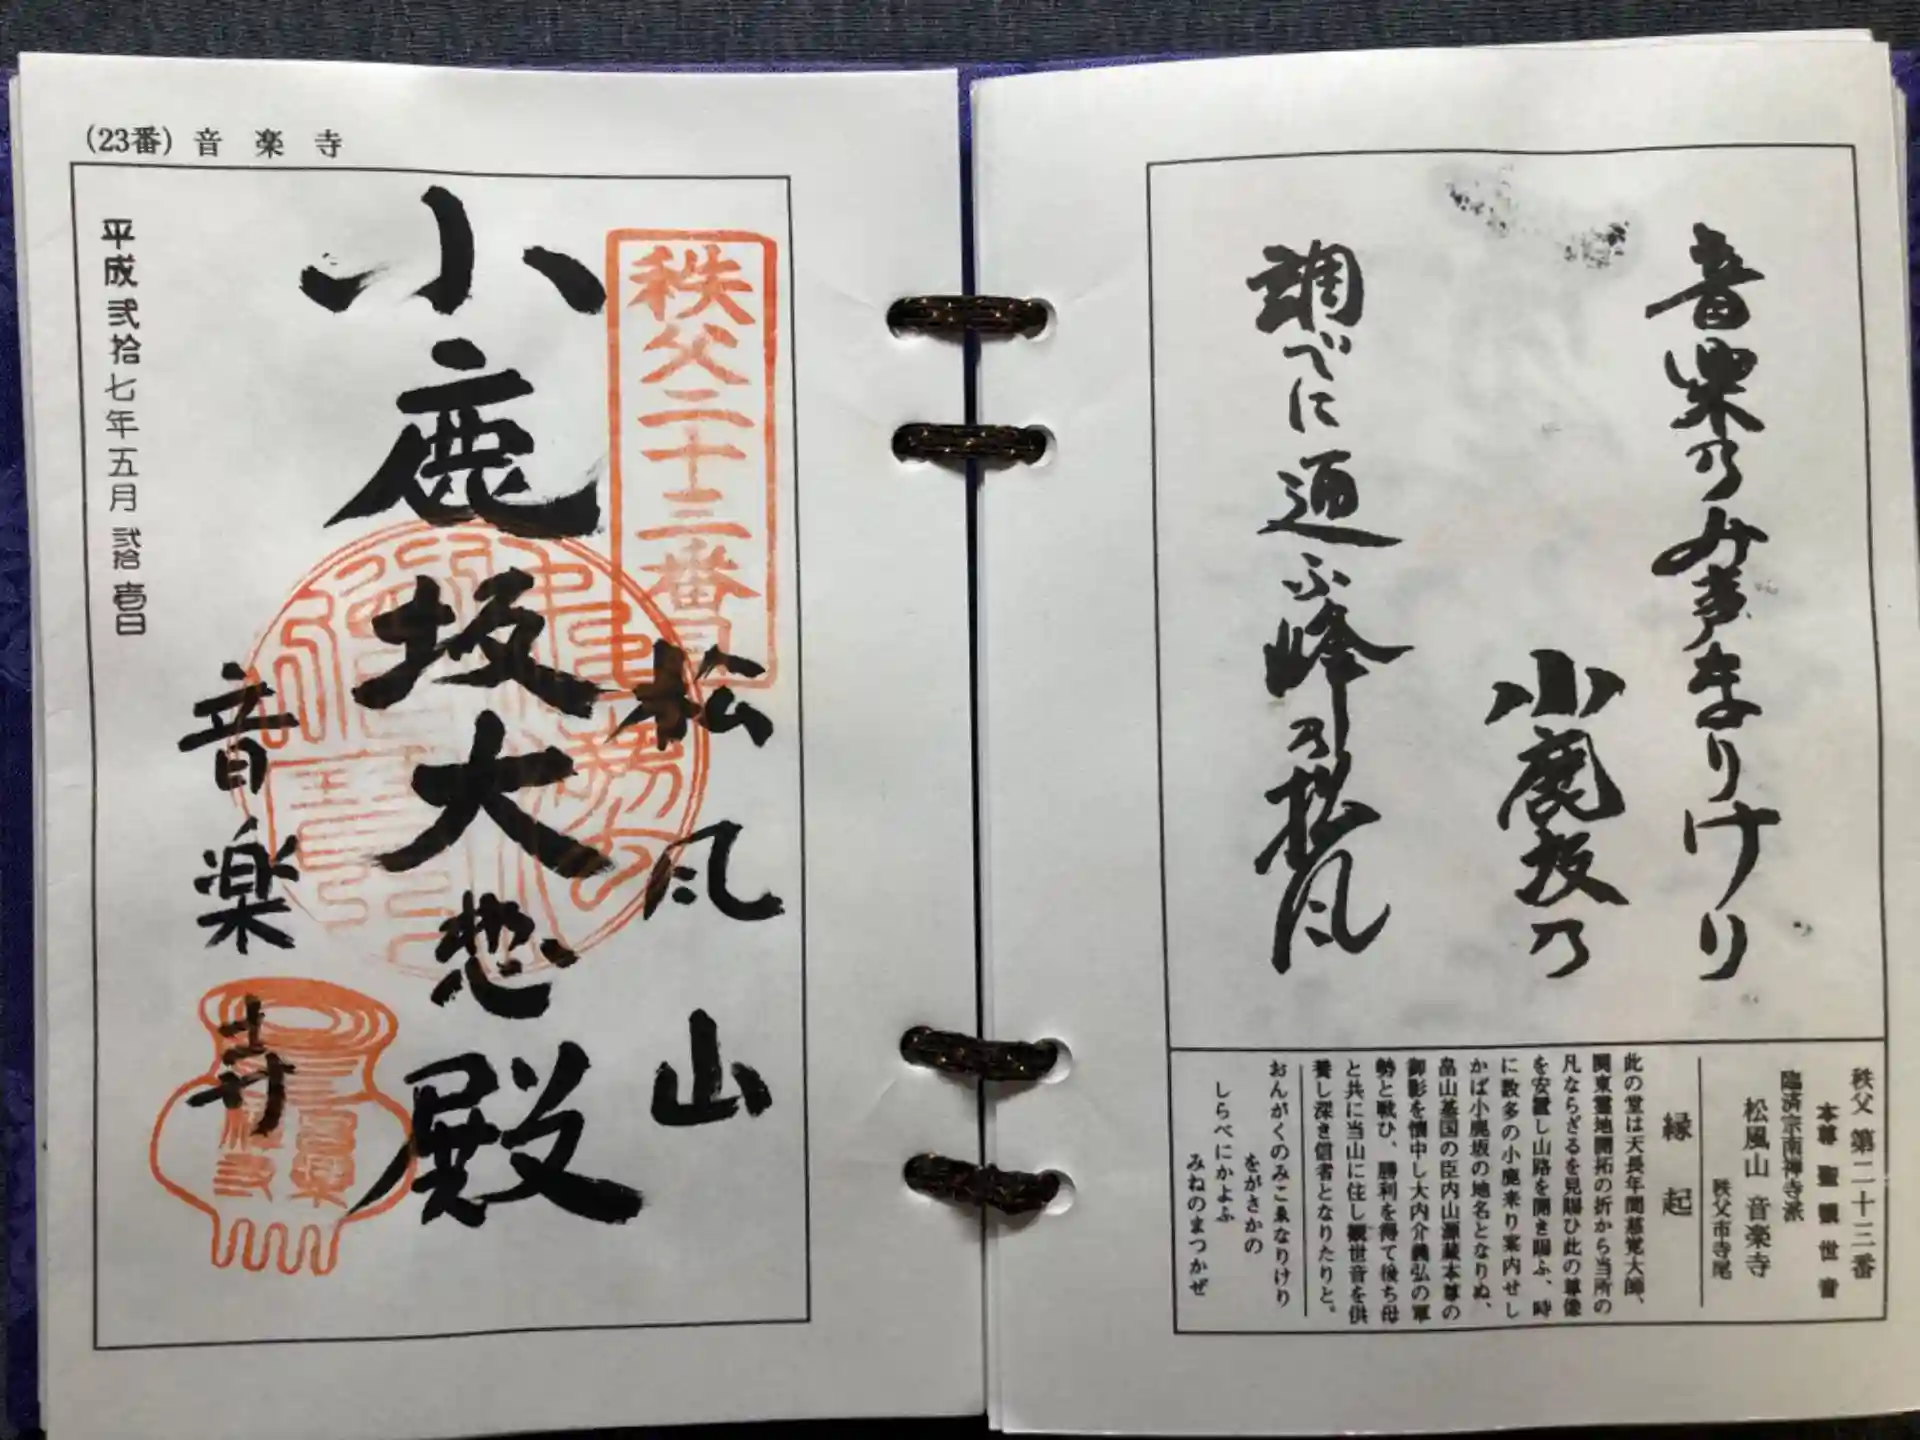 (23番) 音楽寺
秩父二十三番
松風山
小鹿坂大悲殿
音楽寺
平成弐拾七年五月弐拾壱日
音楽乃み声なりけり
小鹿坂乃
調べに通ふ峰乃松風
秩父 第二十三番
本尊 聖観世音
臨済宗南禅寺派
松風山 音楽寺
秩父市寺尾
縁起
此の堂は天長年間慈覚大師、
関東霊地開拓の折から当所の
凡ならざるを見賜ひ此の尊像
を安置し山路を開き賜ふ、時
に数多の小鹿来り案内せし
かば小鹿坂の地名となりぬ、
畠山基国の臣内山源蔵本尊の
御影を懐中し大内介義弘の軍
勢と戦ひ、勝利を得て後ち母
と共に当山に住し観世音を供
養し深き信者となりたりと。
おんがくのみこゑなりけり
をがさかの
しらべにかよふ
みねのまつかぜ